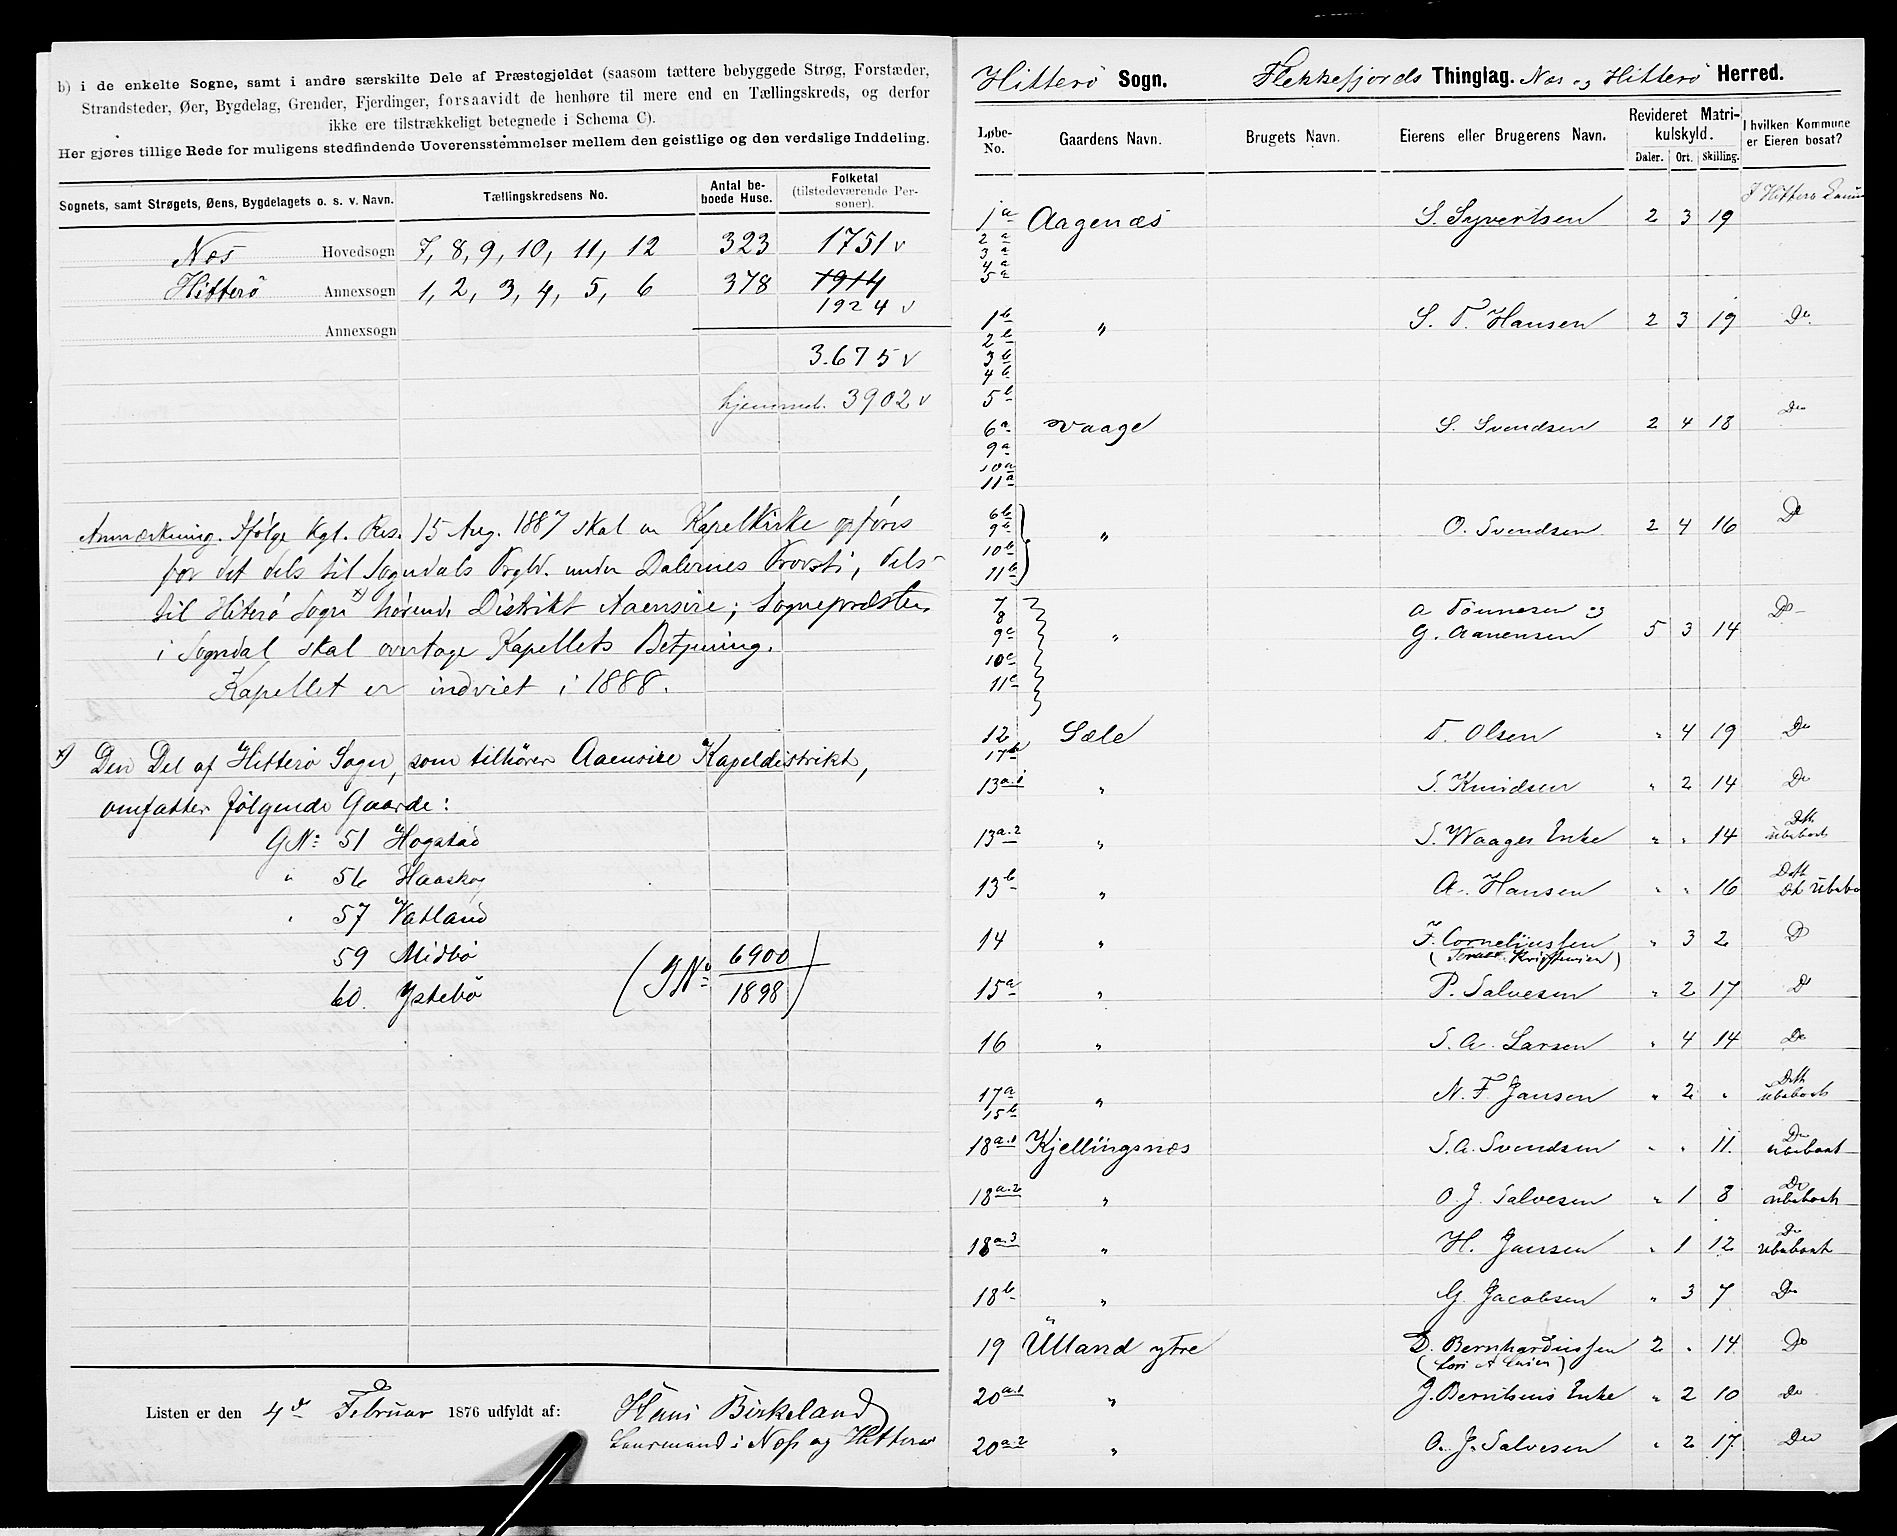 b) i de enkelte Sogne, samt i andre særskilte Dele af Præstegjeldet (saasom tættere bebyggede Strøg, Forstæder,
Strandsteder, Øer, Bygdelag, Grender, Fjerdinger, forsaavidt de henhøre til mere end en Tællingskreds, og derfor
ikke ere tilstrækkeligt betegnede i Schema C).
Her gjøres tillige Rede for muligens stedfindende Uoverensstemmelser mellem den geistlige og den verdslige Inddeling.
Sognets, samt Strøgets, Øens, Bygdelagets o. s. v. Navn. Tællingskredsens No. Antal beboede Huse. Folketal (tilstedeværende Personer).
Nes Hovedsogn 7, 8, 9, 10, 11, 12 323 1751 v
Hitterö Annexsogn 1, 2, 3, 4, 5, 6 378 1914
1924 v
Annexsogn
3.675 v
hjemmeh. 3902 v
Anmærkning. Ifölge Kgl. Res. 15 Aug. 1887 skal en Kapelkirke opföres
for det dels til Sogndals Prgld. under Dalernes Provsti, dels
til Hiterö Sogn x) hörende Distrikt Aaensire; Sognepræsten
i Sogndal skal overtage Kapellets Betjening.
Kapellet er indviet i 1888.
x) Den Del af Hitterö Sogn, som tilhörer Aaensire Kapeldistrikt,
omfatter fölgende Gaarde:
GN: 51 Hogstad
" 56 Haaskog
" 57 Vatland
59 Midbö
60. Ystebö
(JNo 6900
1898)
Listen er den 4de Februar 1876 udfyldt af: Hans Birkeland
Lensmand i Nes og Hitterø
Hitterö Sogn. Flekkefjords Thinglag. Nes og Hitterö Herred.
Løbe-No. Gaardens Navn. Brugets Navn. Eierens eller Brugerens Navn. Revideret Matrikulskyld. Daler. Ort. Skilling. I hvilken Kommune er Eieren bosat?
I Hitterö
1a Aagenæs S. Syvertsen 2 3 19
2a
3a
4a
5a
1b " S. T. Hansen 2 3 19 Do
2b
3b
4b
5b
6a Vaage S. Svendsen 2 4 18 Do
9a
10a
11a
6b " O. Svendsen 2 4 16 Do
9b
10b
11b
7 A Tönnesen og Do
8
9c " G. Aanensen 5 3 14
10c
11c
12 Sæle T. Olsen " 4 19 Do
17b
13a.1 " S. Knudsen " 2 14 Do
13a.2 " S. Waages Enke " " 14 ubeboet
13b " A. Hansen " " 16
14 " F. Corneliussen " 3 2 D
15a " P. Salvesen " 2 17 D
16 " S. A. Larsen " 4 14 Do
17a " N. F. Jansen " 2 " ubeboet
15b
18a.1 Kjellingsnæs S. A. Svendsen " " 11. Do ubeboet
18a.2 " O. J. Salvesen " 1 8 Do ubeboet
18a.3 " H. Jansen " 1 12 Do ubeboet
18b " G. Jacobsen " 3 7 Do
19 Ülland ytre D. Bernhardussen 2 " 14 Do
20a.1 " J. Berntsens Enke " 2 10 Do
20a.2 " O. J. Salvesen " 2 17. Do